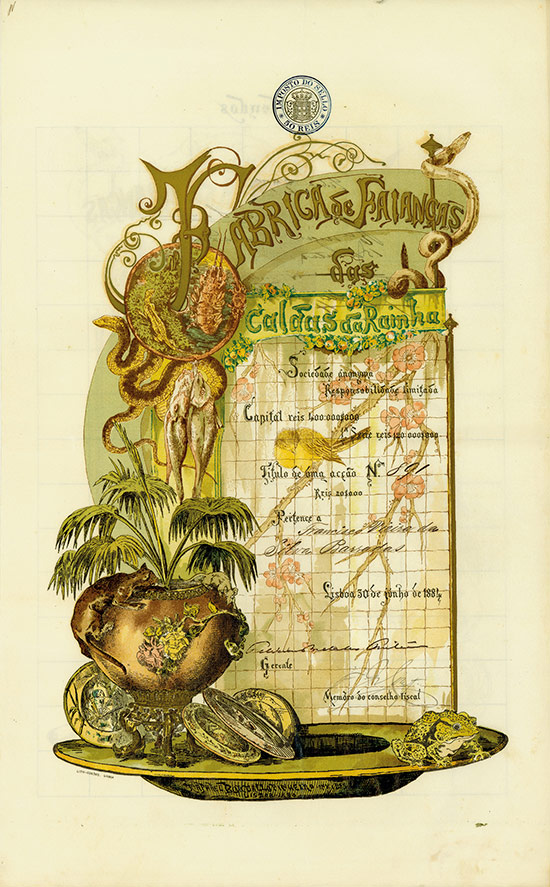 IMPOSTO DO SELLO
50 REIS
FABRICA DE FAIANÇAS
das
Caldas da Rainha
Sociedade ánonyma
Responsabilidade limitada
Capital reis 400:000$000
1ª Serie reis 120:000$000
Titulo de uma acção Nº 891
Reis 20$000
Pertence a Francisco Vieira da
Silva
Lisboa 30 de junho de 1884
Gerente
Membro do conselho fiscal
LISBOA